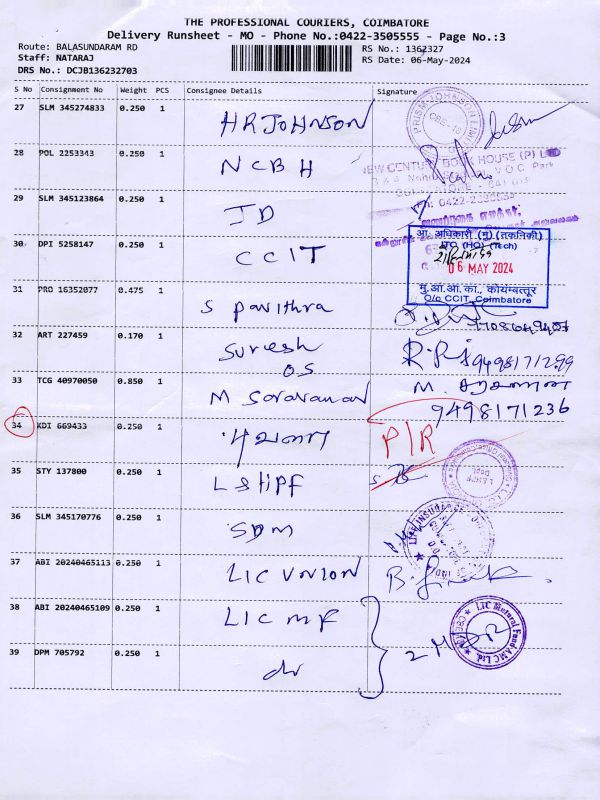 THE PROFESSIONAL COURIERS, COIMBATORE
Delivery Runsheet - MO - Phone No.:0422-3505555 - Page No.:3
Route: BALASUNDARAM RD
RS No.: 1362327
Staff: NATARAJ
RS Date: 06-May-2024
DRS No.: DCJB136232703
S No Consignment No Weight PCS Consignee Details Signature
27 SLM 345274833 0.250 1 HR JOHNSON
28 POL 2253343 0.250 1 NCBH
NEW CENTURY BOOK HOUSE (P) LTD
29 SLM 345123864 0.250 1 JD
30 DPI 5258147 0.250 1 CCIT
आ. अधिकारी (मु) (तकनिकी)
ITO (HQ) (Tech)
06 MAY 2024
मु.आ.आ.का., कोयम्बत्तूर
O/o CCIT, Coimbatore
31 PRO 16352077 0.475 1 S Pavithra
32 ART 227459 0.170 1 Suresh
OS
R.R 9498171299
33 TCG 40970050 0.850 1 M Saravanan
M. சரவணன
9498171236
34 KDI 669433 0.250 1
P/R
35 STY 137800 0.250 1 L&HPF
36 SLM 345170776 0.250 1 SDM
37 ABI 20240465113 0.250 1 LIC UNION
38 ABI 20240465109 0.250 1 LIC MF
LIC Mutual Fund AMC Ltd.
39 DPM 705792 0.250 1 do